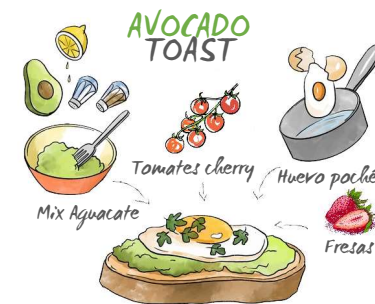 AVOCADO
TOAST
Tomates cherry
Huevo poché
Mix Aguacate
Fresas